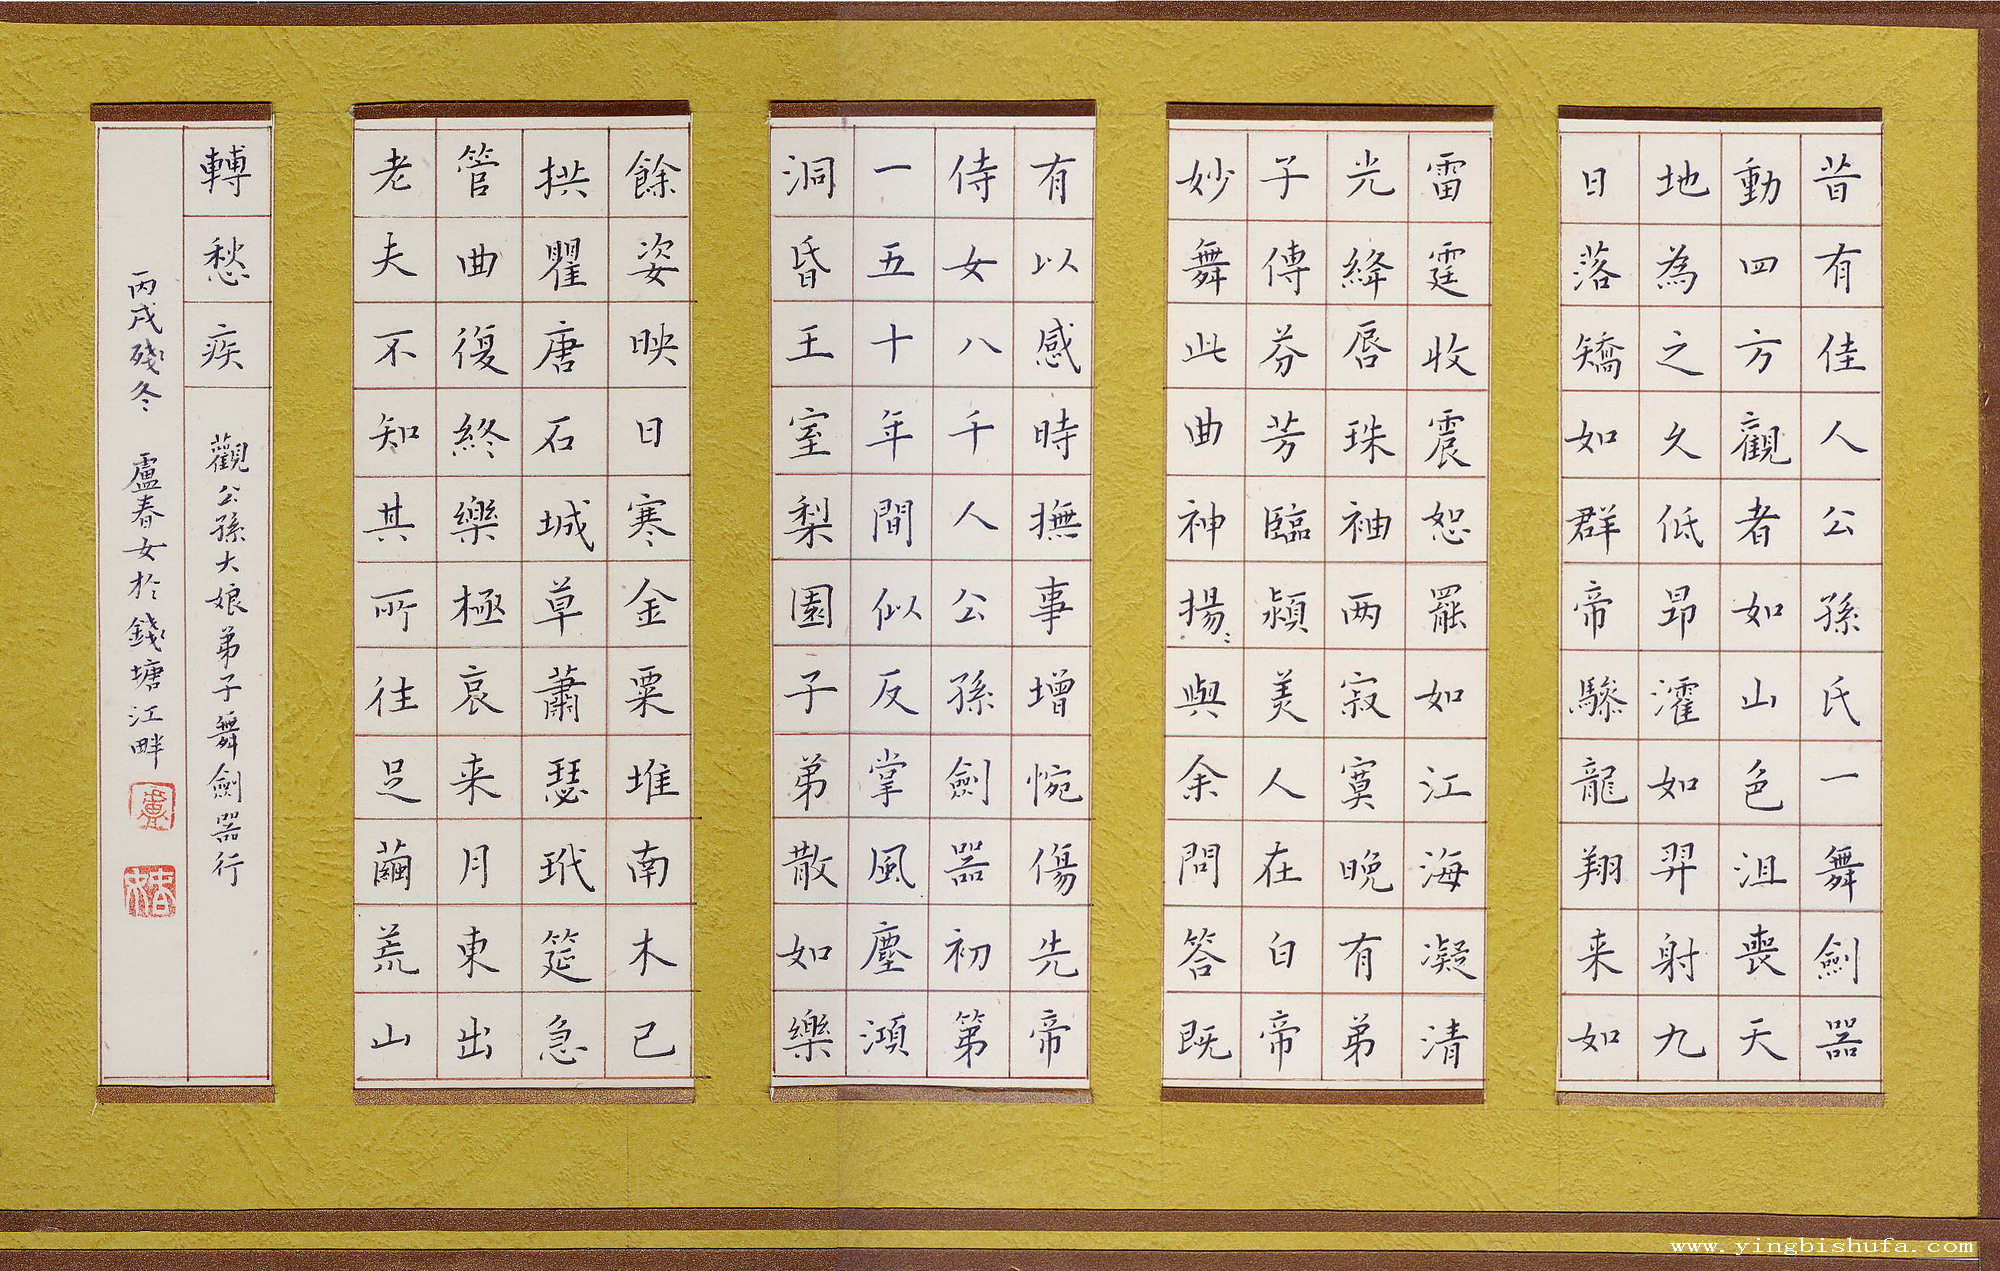 昔有佳人公孫氏一舞劍器
動四方觀者如山色沮喪天
地為之久低昂瀖如羿射九
日落矯如群帝驂龍翔来如
雷霆收震恕罷如江海凝清
光絳唇珠袖两寂寞晚有弟
子傳芬芳臨潁美人在白帝
妙舞此曲神揚〻與余問答既
有以感時撫事增惋傷先帝
侍女八千人公孫劍器初第
一五十年間似反掌風塵澒
洞昏王室梨園子弟散如樂
餘姿映日寒金粟堆南木已
拱瞿唐石城草蕭瑟玳筵急
管曲復終樂極哀来月東出
老夫不知其所往足繭荒山
轉愁疾 觀公孫大娘弟子舞劍器行
丙戌殘冬 盧春女於錢塘江畔
盧
www.yingbishufa.com